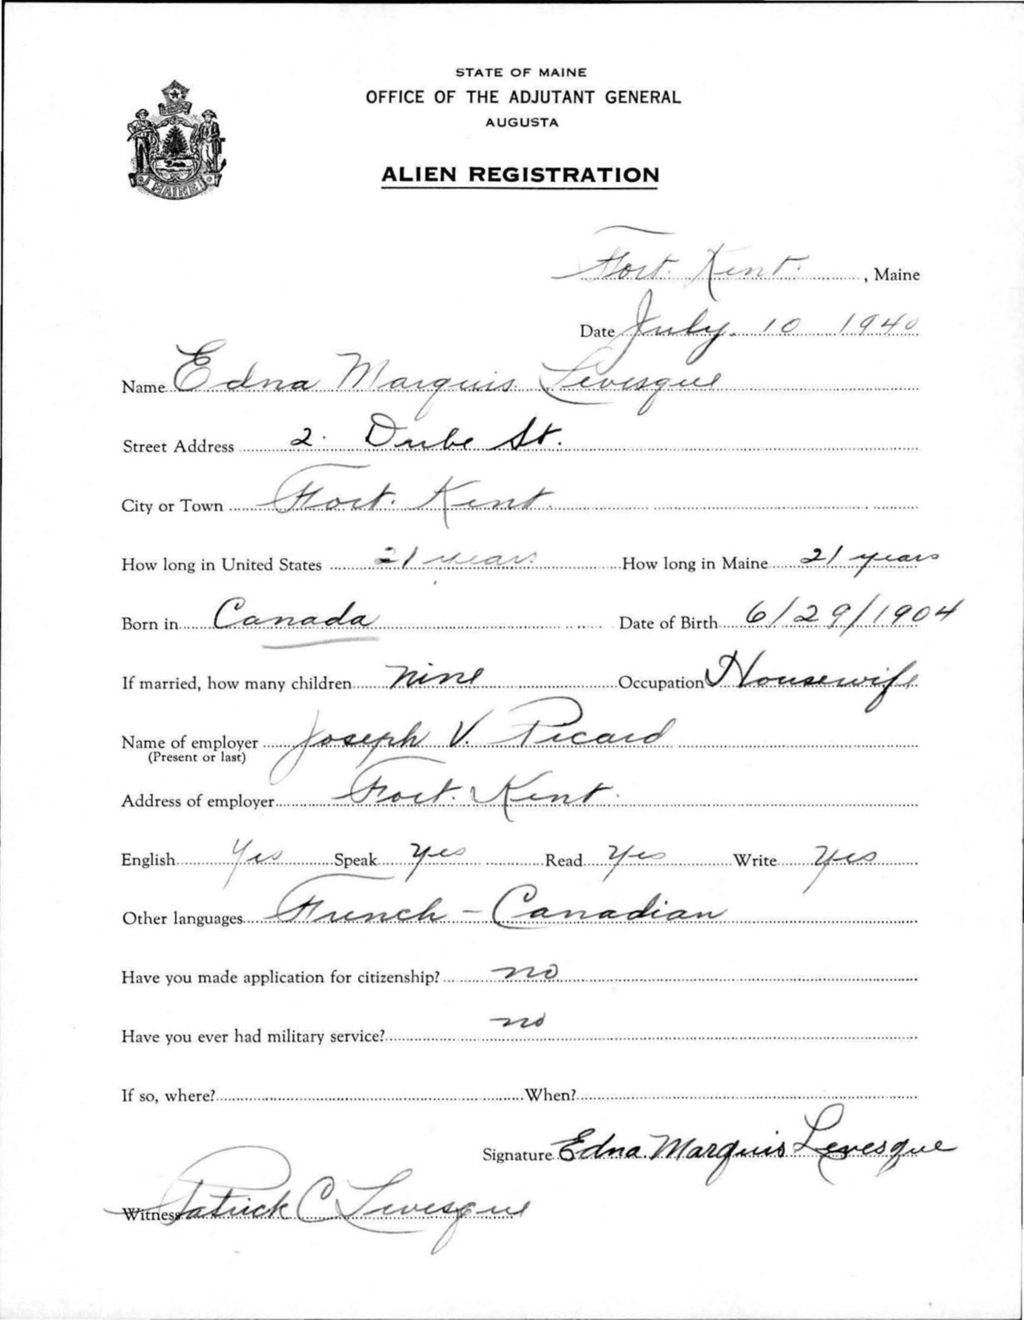 STATE OF MAINE
OFFICE OF THE ADJUTANT GENERAL
AUGUSTA
ALIEN REGISTRATION
MAINE
Fort Kent, Maine
Date July 10 1940
Name Edna Marquis Levesque
Street Address 2. Dube St.
City or Town Fort Kent
How long in United States 21 years How long in Maine 21 years
Born in Canada Date of Birth 6/29/1904
If married, how many children nine Occupation Housewife
Name of employer Joseph V. Picard
(Present or last)
Address of employer Fort Kent
English Yes Speak Yes Read Yes Write Yes
Other languages French - Canadian
Have you made application for citizenship? no
Have you ever had military service? no
If so, where? When?
Signature Edna Marquis Levesque
Witness Patrick C Levesque